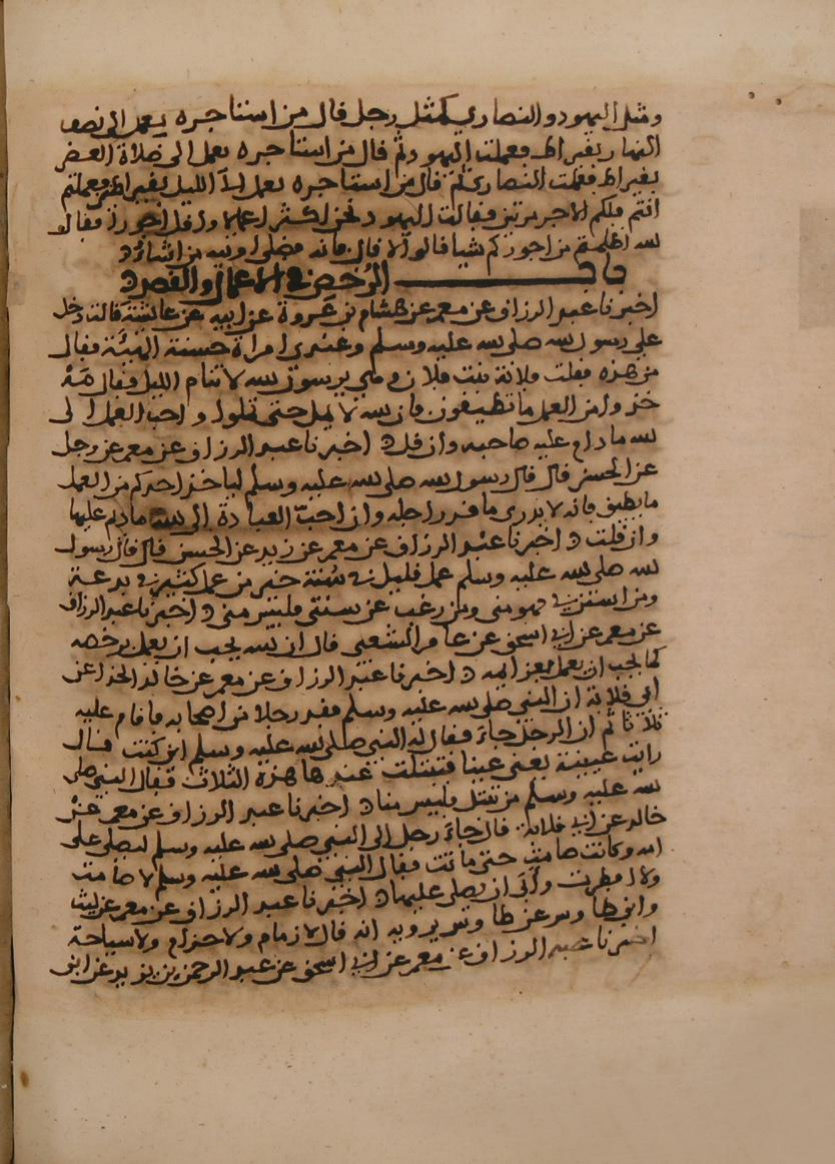 ومثل اليهود والنصارى كمثل رجل قال من استاجره يعمل الى نصف
النهار بقيراط فعملت اليهود ثم قال من استاجره يعمل الى صلاة العصر
بقيراط فعملت النصارى ثم قال من استاجره يعمل الى الليل بقيراطين فعملتم
انتم فلكم الاجر مرتين فقالت اليهود نحن اكثر اعمالا واقل اجورا فقال
لله اظلمتم من اجوركم شيا قالوا لا قال فانه فضلي اوتيه من اشاء
باب الرخص في الاعمال والقصد
اخبرنا عبد الرزاق عن معمر عن هشام بن عروة عن ابيه عن عائشة قالت دخل
على رسول لله صلى لله عليه وسلم وعندي امراة حسنة الهيئة فقال
من هذه فقلت فلانة بنت فلان وهي يرسول لله لا تنام الليل فقال مه
خذوا من العمل ما تطيقون فان لله لا يمل حتى تملوا واحب العمل الى
لله ما دام عليه صاحبه وان قل اخبرنا عبد الرزاق عن معمر عن رجل
عن الحسن قال قال رسول لله صلى لله عليه وسلم لياخذ احدكم من العمل
ما يطيق فانه لا يدري ما قدر اجله وان احب العبادة الى لله ما ديم عليها
وان قلت اخبرنا عبد الرزاق عن معمر عن زيد عن الحسن قال قال رسول
لله صلى لله عليه وسلم عمل قليل في سنة خير من عمل كثير في بدعة
ومن استن بي فهو مني ومن رغب عن سنتي فليس مني اخبرنا عبد الرزاق
عن معمر عن ابي اسحق عن عامر الشعبي قال ان لله يحب ان يعمل برخصه
كما يحب ان يعمل بعزايمه اخبرنا عبد الرزاق عن معمر عن خالد الحذا عن
ابي قلابة ان النبي صلى لله عليه وسلم فقد رجلا من اصحابه فاقام عليه
ثلاثا ثم ان الرجل جاء فقال له النبي صلى لله عليه وسلم اين كنت قال
رايت عيينة يعني عينا فتبتلت عندها هذه الثلاث فقال النبي صلى
لله عليه وسلم من تبتل فليس منا اخبرنا عبد الرزاق عن معمر عن
خالد عن ابي قلابة قال جاء رجل الى النبي صلى لله عليه وسلم ليصلي على
امه وكانت صامت حتى ماتت فقال النبي صلى لله عليه وسلم لا صامت
ولا افطرت وابى ان يصلي عليها اخبرنا عبد الرزاق عن معمر عن ليث
وابن طاوس عن طاوس يرويه انه قال لا زمام ولا خزام ولا سياحة
اخبرنا عبد الرزاق عن معمر عن ابي اسحق عن عبد الرحمن بن يزيد عن ابن